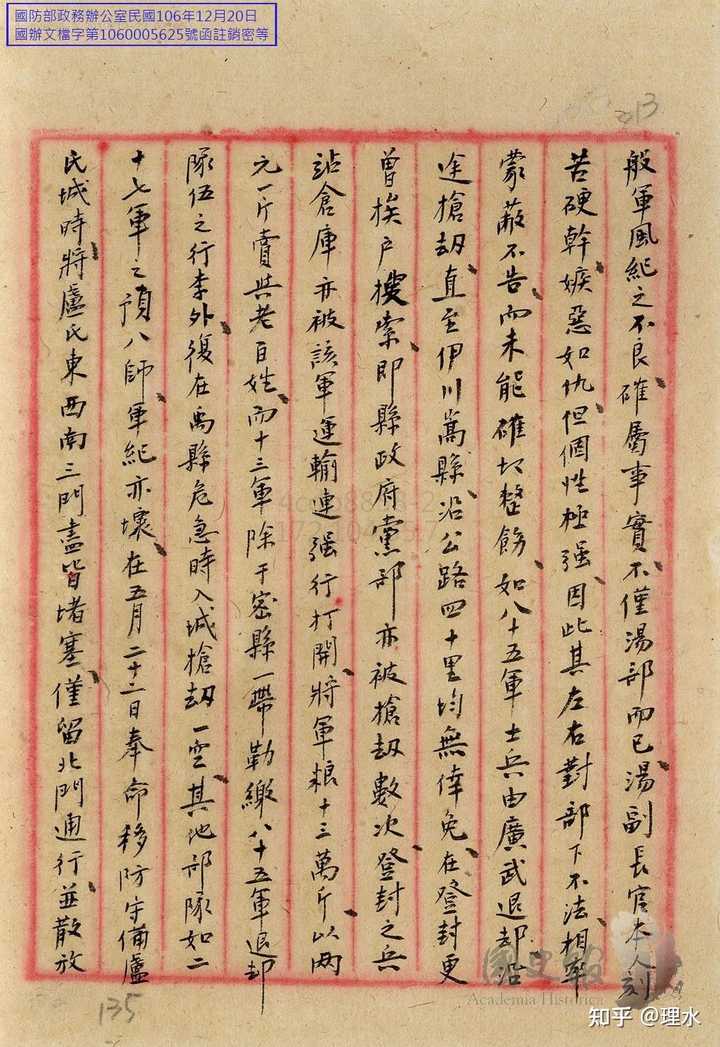 國防部政務辦公室民國106年12月20日
國辦文檔字第1060005625號函註銷密等
313
般軍風紀之不良、確屬事實、不僅湯部而已、湯副長官本人刻
苦硬幹、嫉惡如仇、但個性極强、因此其左右對部下不法、相率
蒙蔽不告、而未能確切整飭、如八十五軍士兵由廣武退却沿
途搶劫、直至伊川嵩縣、沿公路四十里均無倖免、在登封更
曾挨戶搜索、即縣政府黨部亦被搶劫數次、登封之兵
站倉庫亦被該軍運輸連强行打開、將軍粮十三萬斤、以兩
元一斤賣與老百姓、而十三軍除于密縣一帶勒繳八十五軍退却
隊伍之行李外、復在禹縣危急時入城搶劫一空、其他部隊如二
十七軍之預八師、軍紀亦壞、在五月二十二日奉命移防守備盧
氏城時、將盧氏東西南三門盡皆堵塞、僅留北門通行、並散放
135
國史館
Academia Historica
知乎 @理水